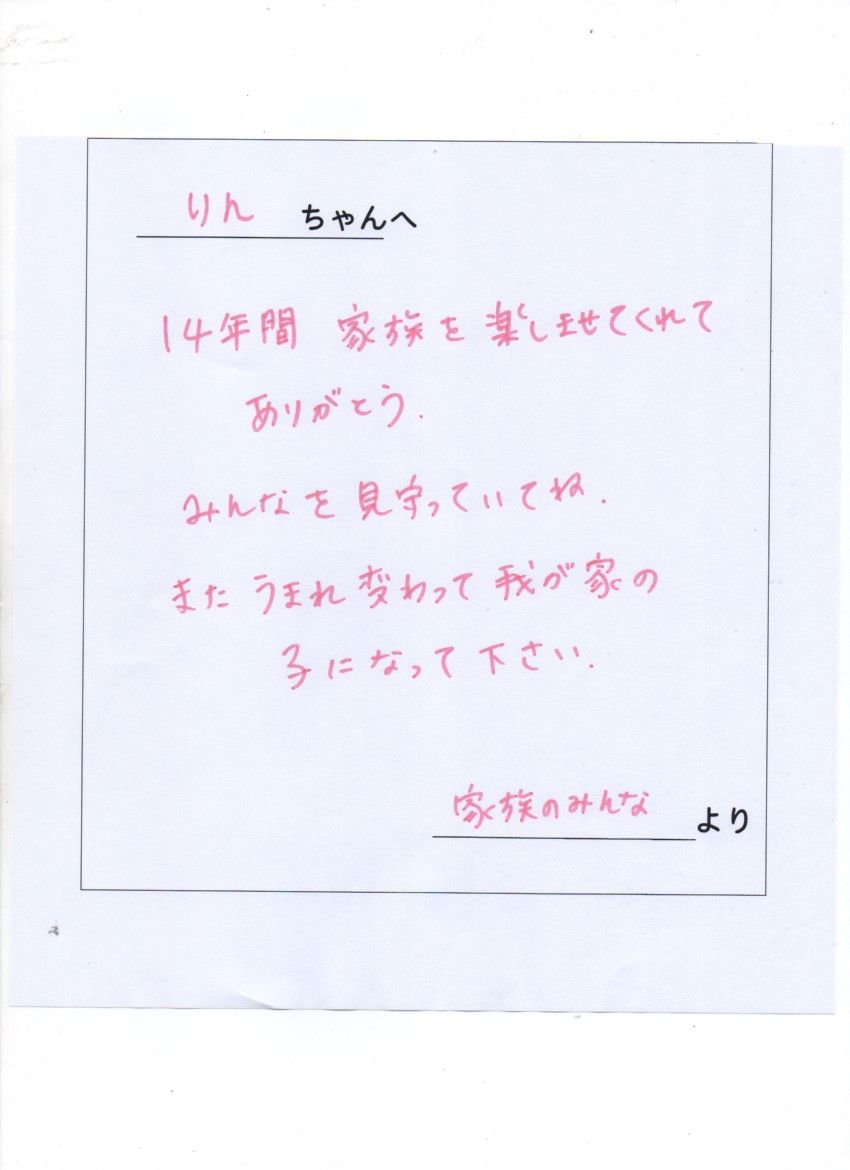 りん ちゃんへ
14年間 家族を楽しませてくれて
ありがとう.
みんなを見守っていてね.
またうまれ変わって我が家の
子になって下さい.
家族のみんな より